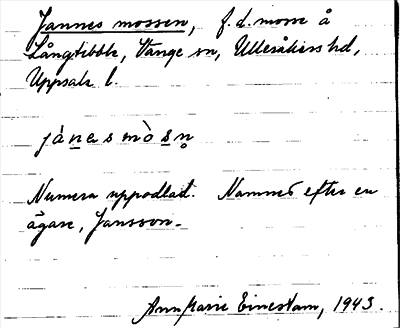 Jannes mossen, f. d. mosse å
Långtibble, Vänge sn, Ulleråkers hd,
Uppsala l.
jànasmòsn̥
Numera uppodlad. Namned efter en
ägare, Jansson.
Ann Marie Einestam, 1943.